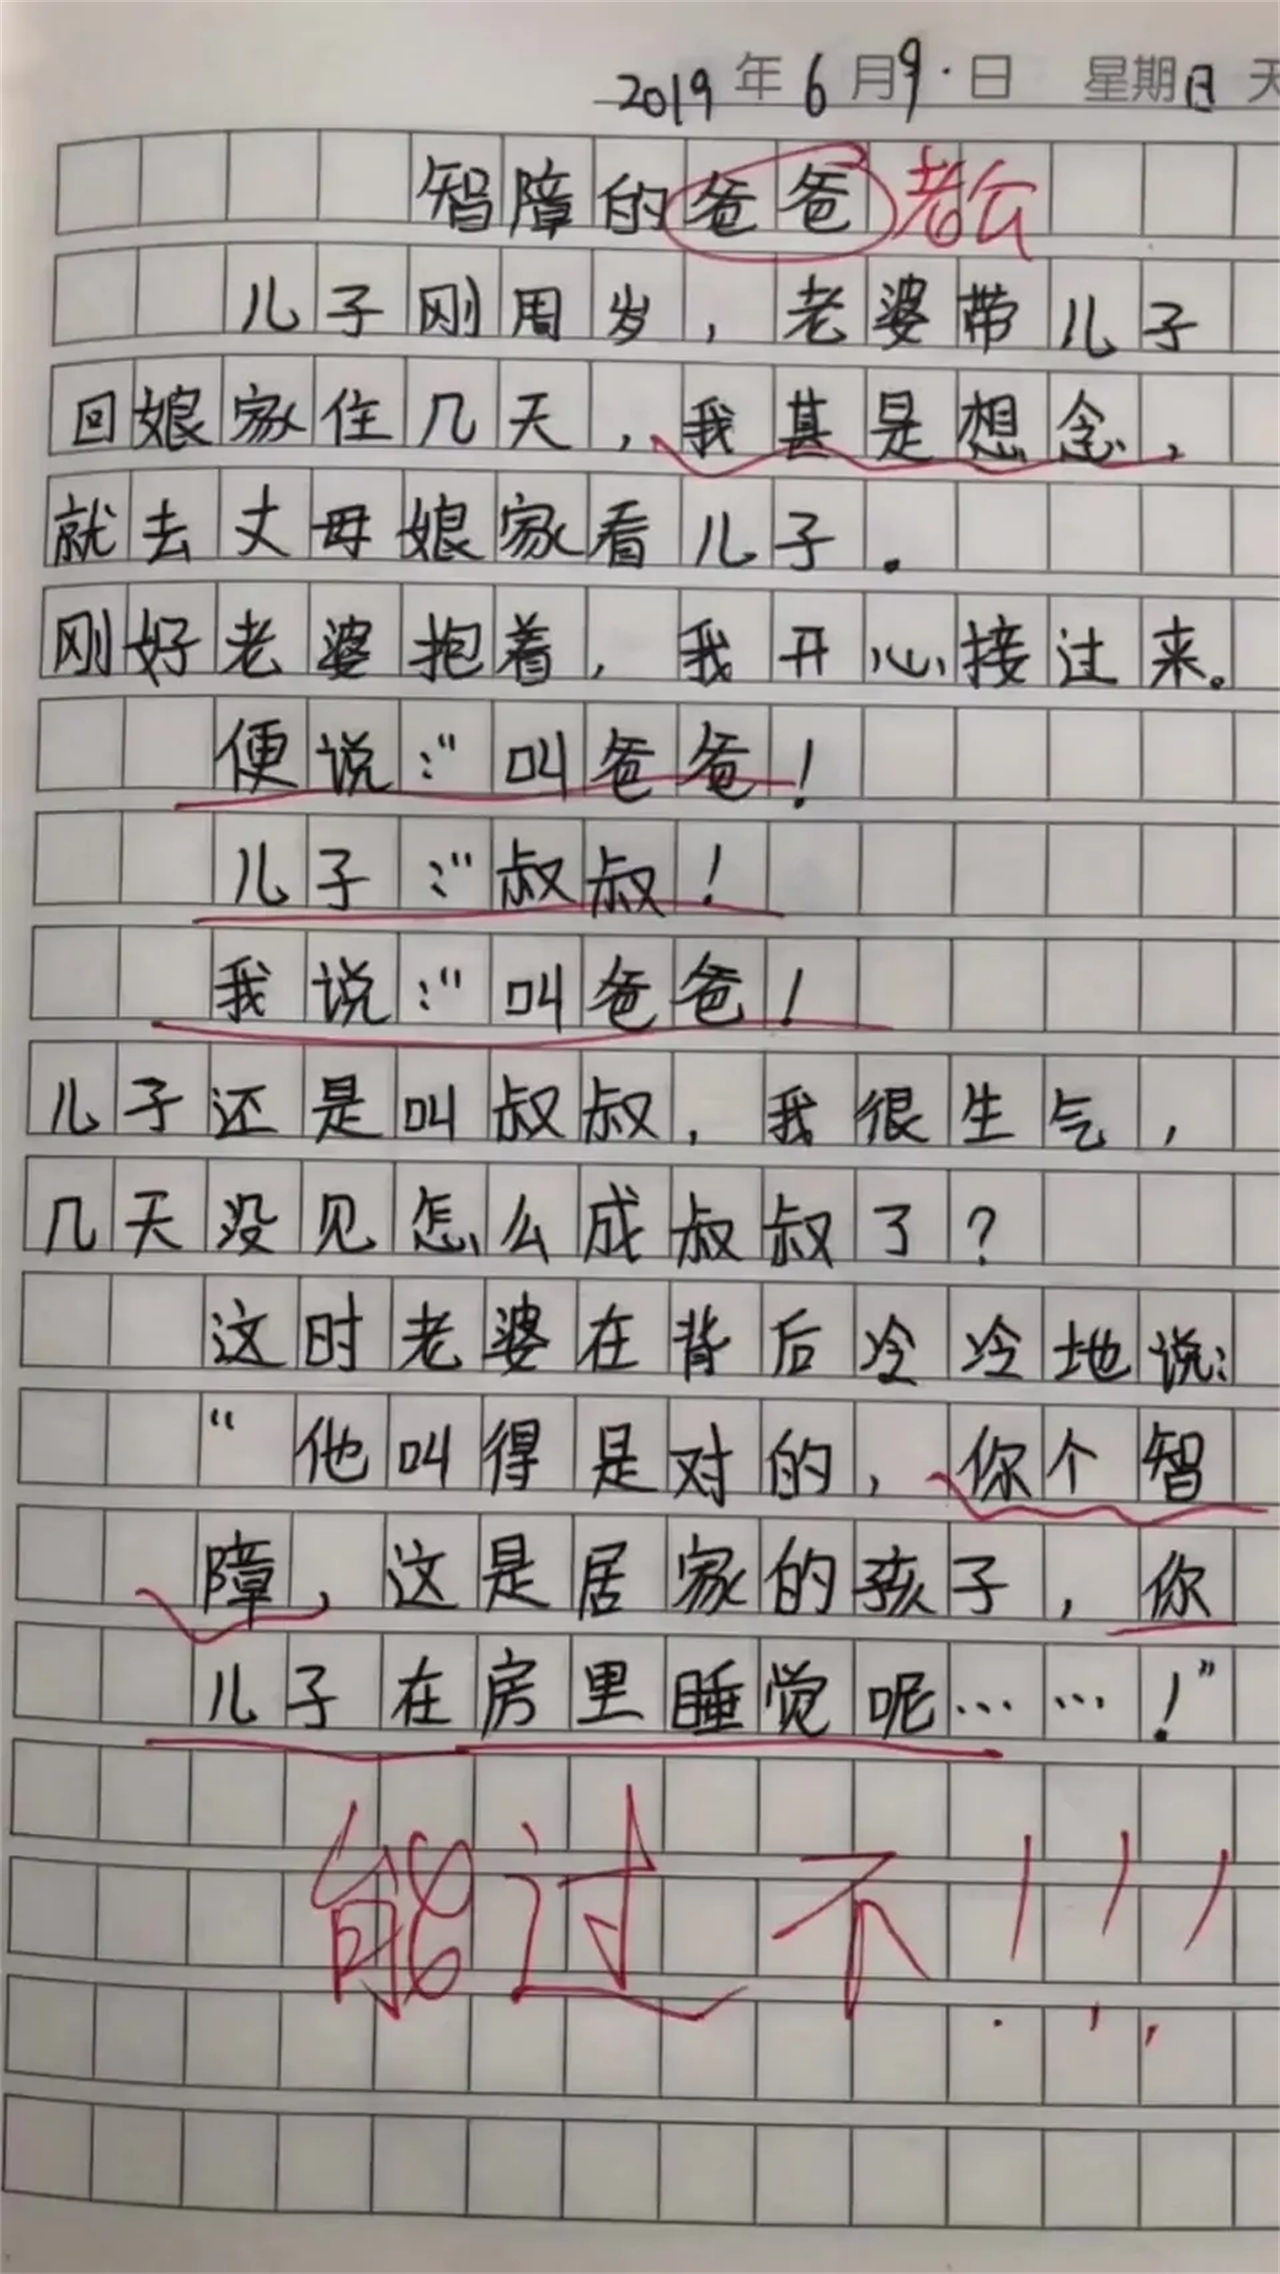 2019年6月9日 星期日 天
智障的爸爸 老公
儿子刚周岁，老婆带儿子
回娘家住几天，我甚是想念，
就去丈母娘家看儿子。
刚好老婆抱着，我开心接过来。
便说：“叫爸爸！
儿子：“叔叔！
我说：“叫爸爸！
儿子还是叫叔叔，我很生气，
几天没见怎么成叔叔了？
这时老婆在背后冷冷地说：
“他叫得是对的，你个智
障，这是居家的孩子，你
儿子在房里睡觉呢……！”
能过不！！！